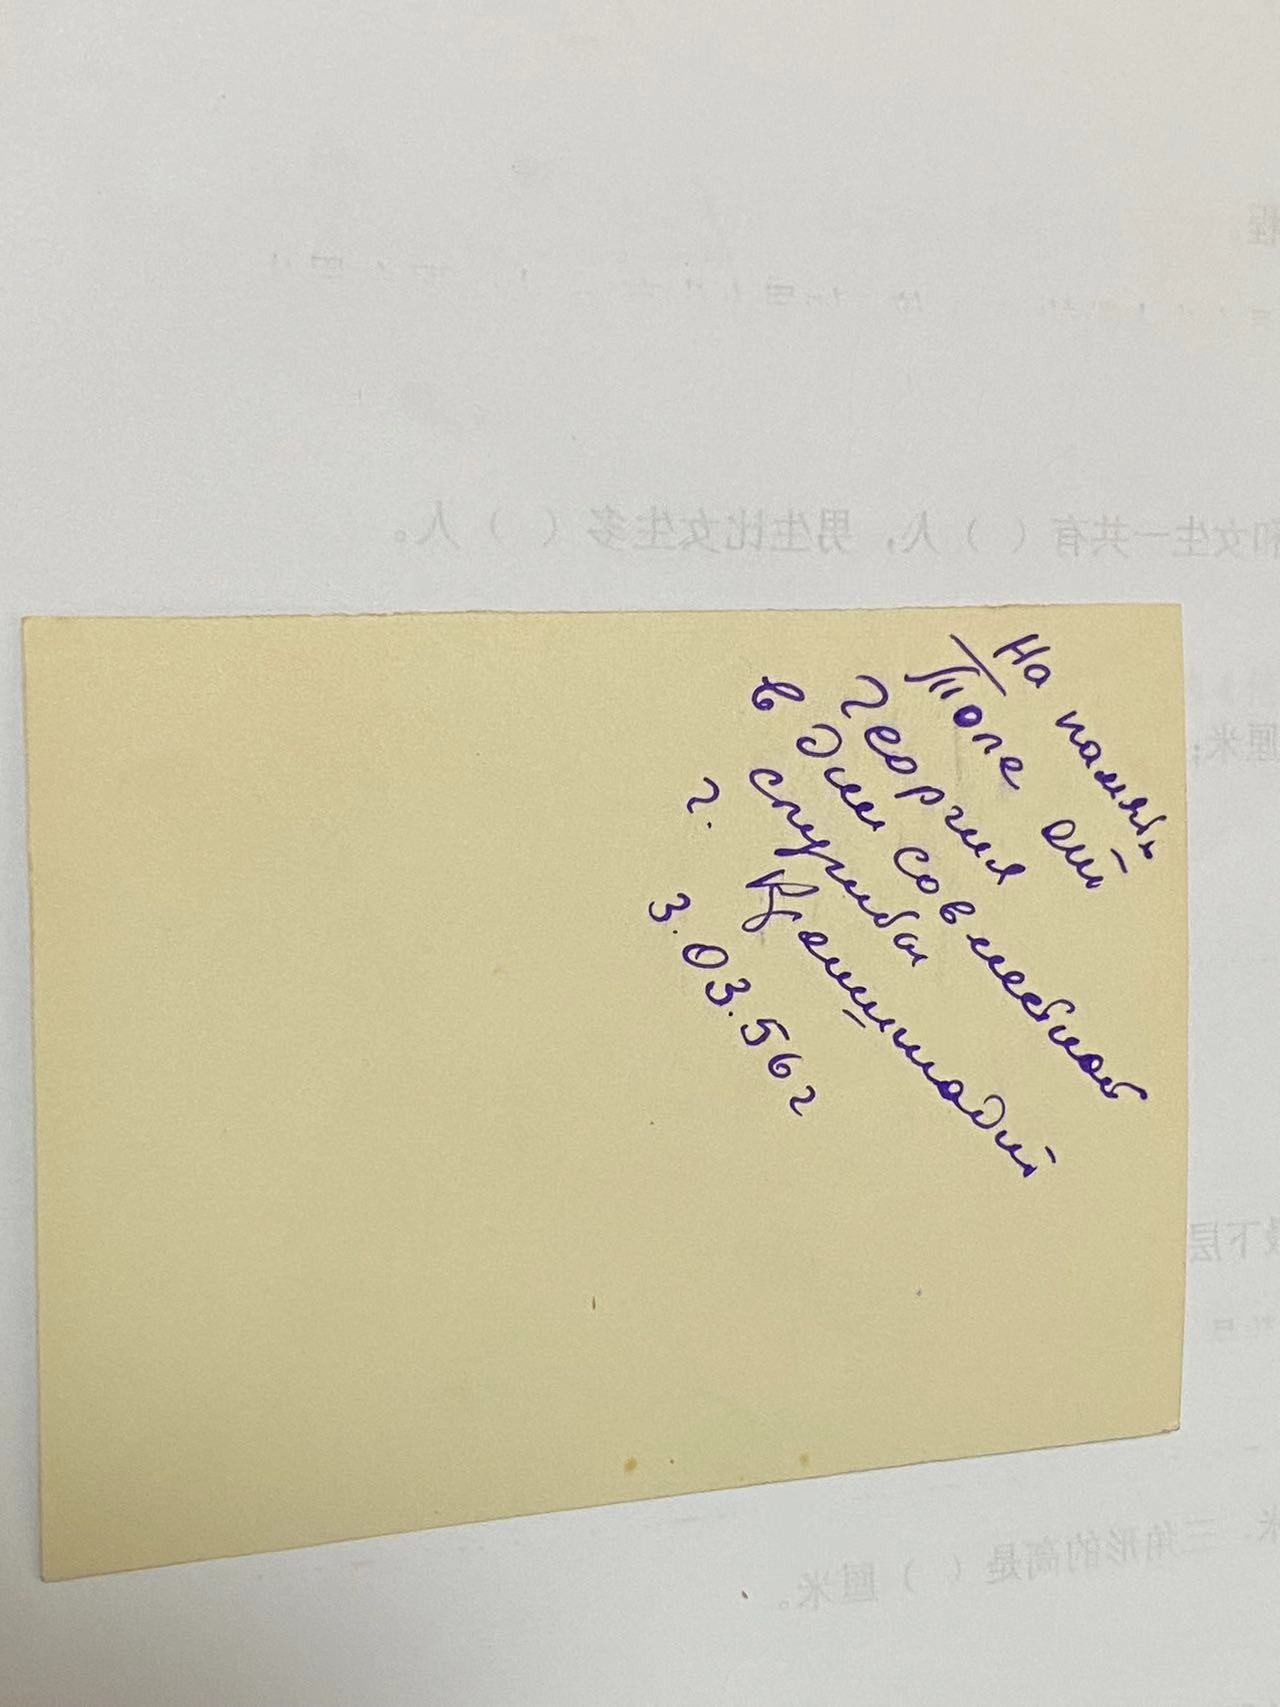 程。
和女生一共有（ ）人，男生比女生多（ ）人。
厘米；
На память
Толе от
Георгия
в дни совместной
службы
г. Кронштадт
3.03.56г
最下层
米. 三角形的高是（ ）厘米。